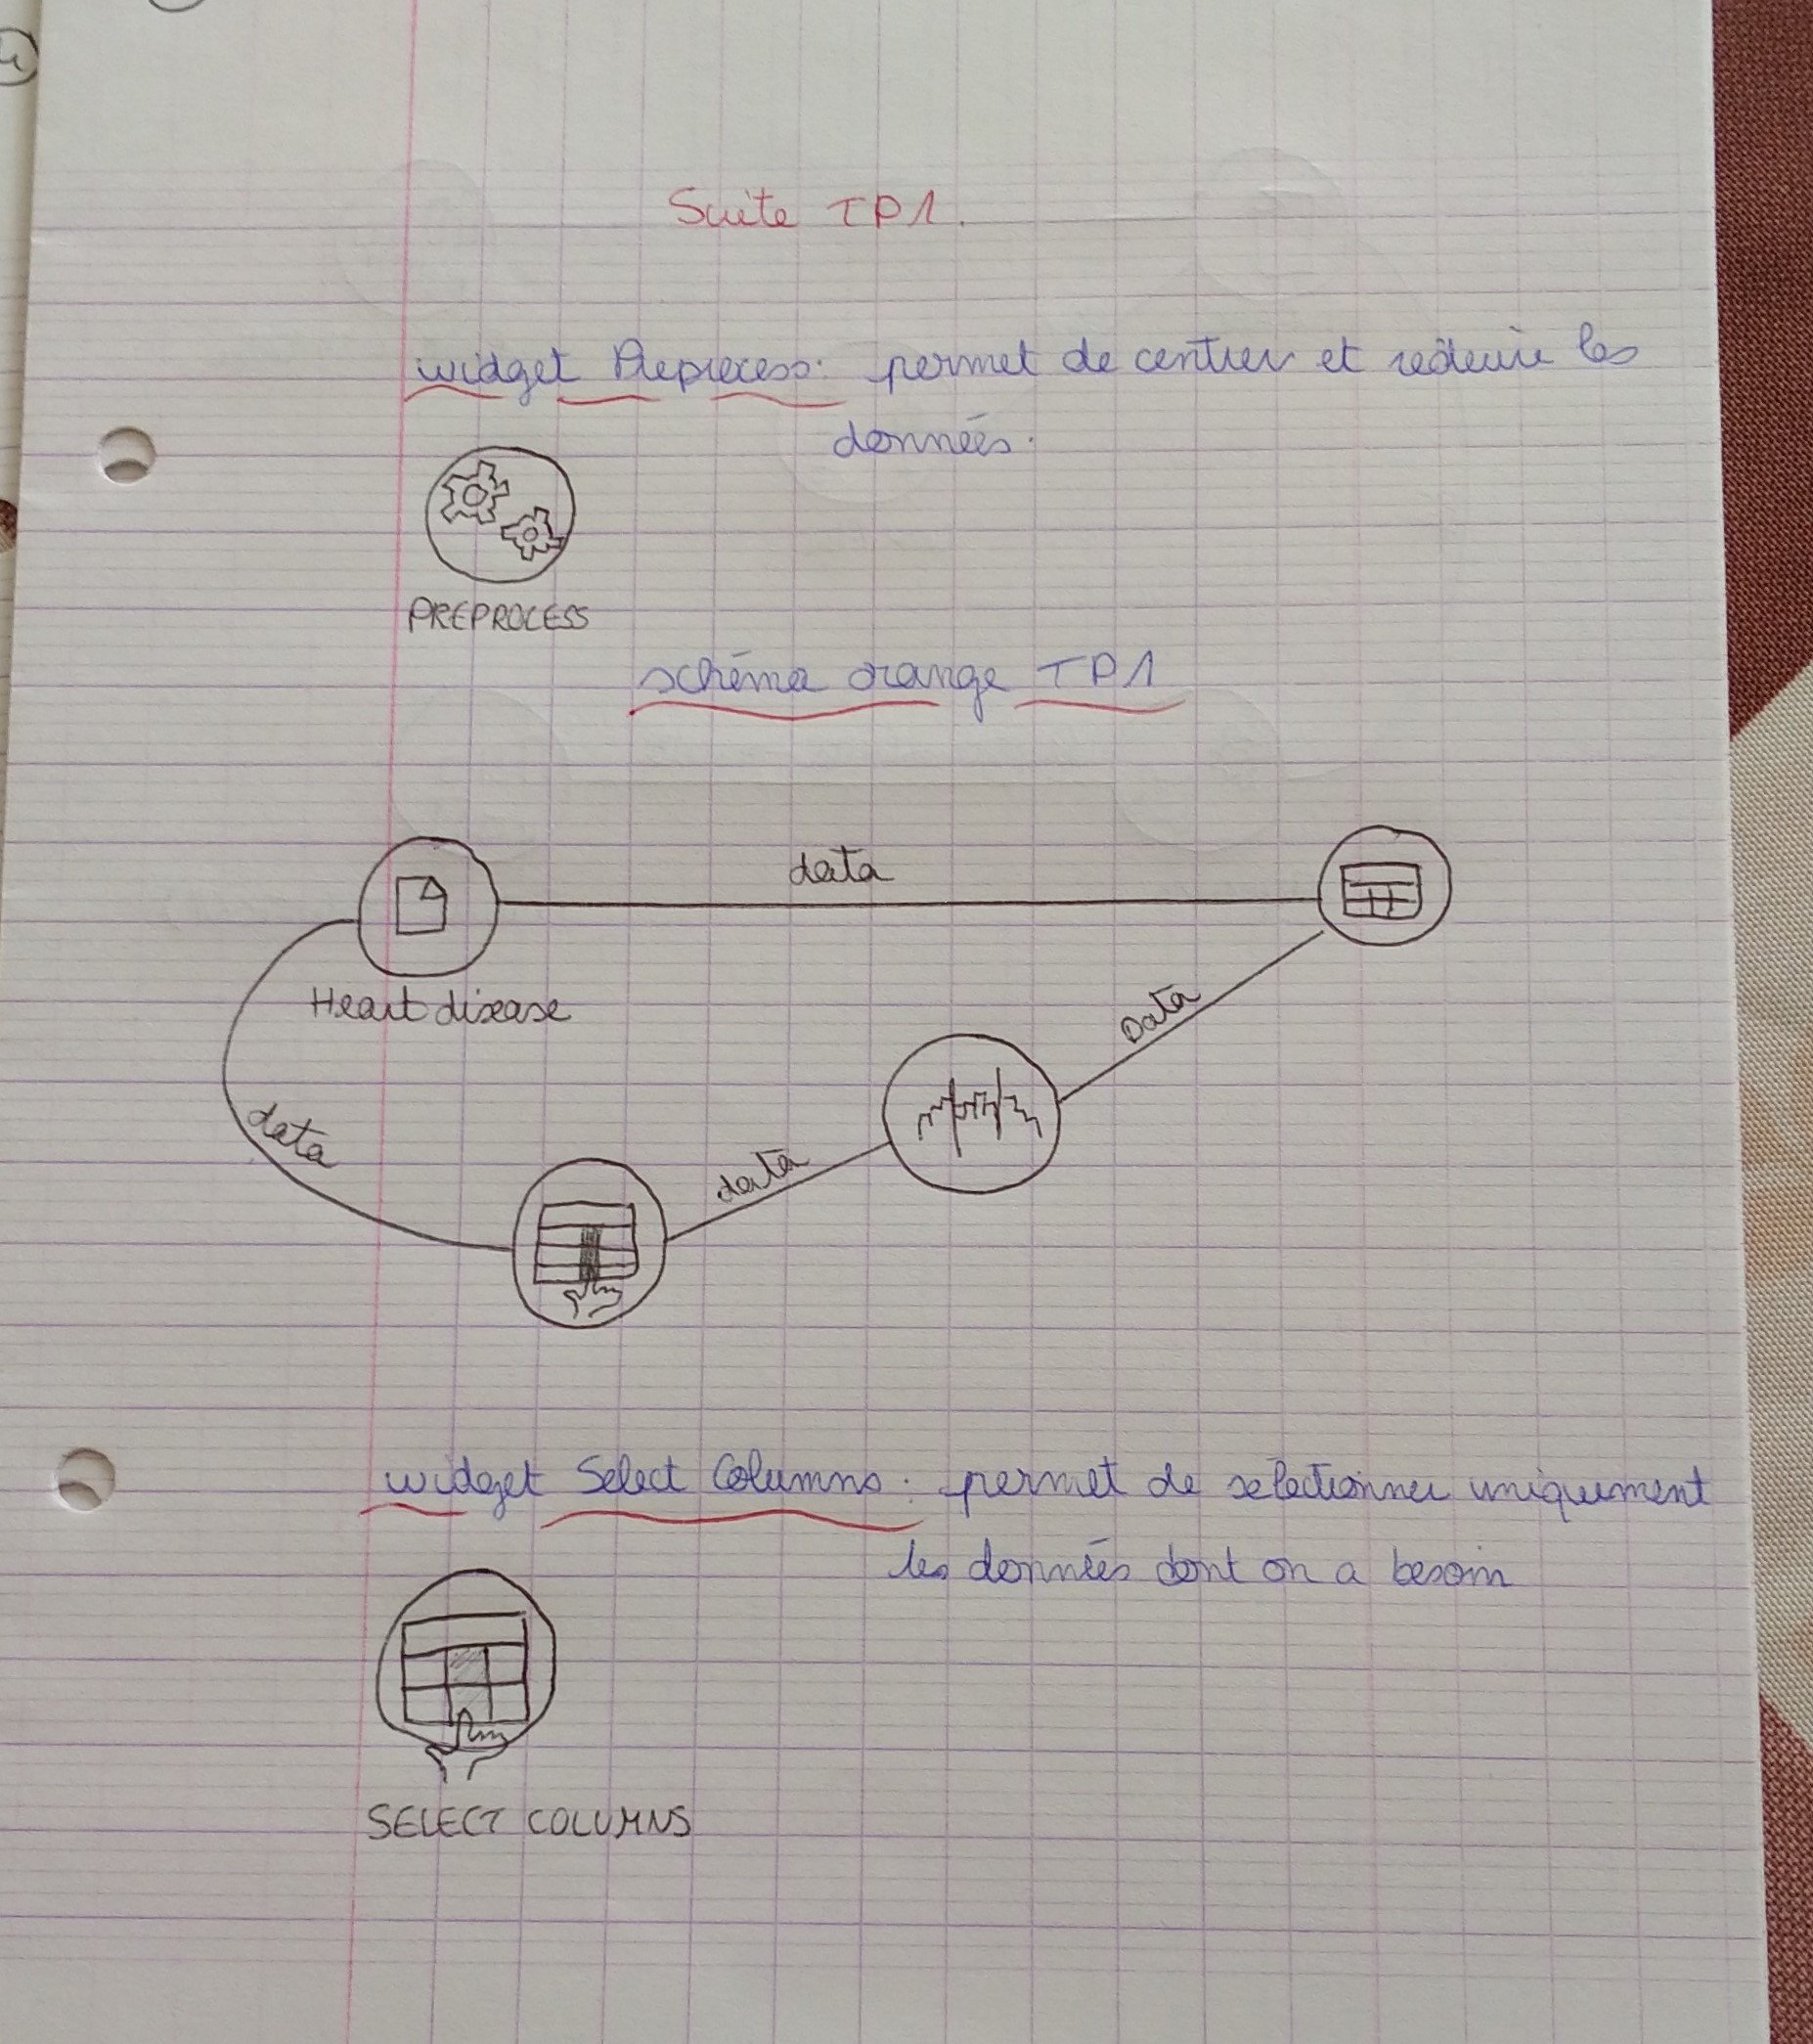 4
Suite TP1.
widget Preprocess: permet de centrer et réduire les
données.
PREPROCESS
schéma orange TP1
data
Heart disease
Data
data
data
widget Select Columns: permet de sélectionner uniquement
les données dont on a besoin
SELECT COLUMNS